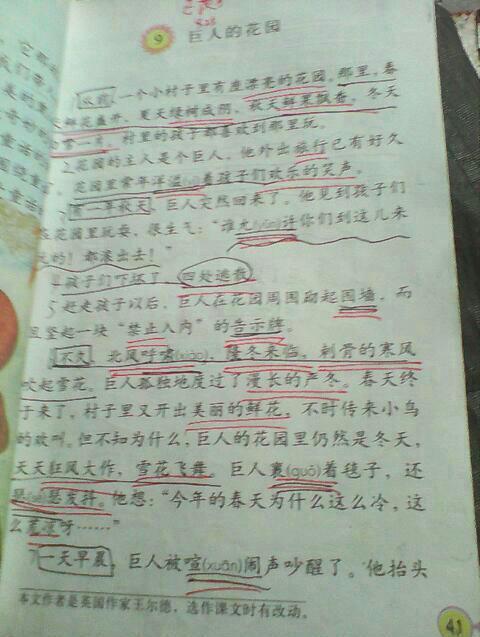 9 巨人的花园
从前,一个小村子里有座漂亮的花园。那里,春
天鲜花盛开,夏天绿树成阴,秋天鲜果飘香,冬天
白雪一片。村里的孩子都喜欢到那里玩。
2花园的主人是个巨人,他外出旅行已有好久
花园里常年洋溢(yì)着孩子们欢乐的笑声。
3有一年秋天,巨人突然回来了。他见到孩子们
在花园里玩耍,很生气:“谁允(yǔn)许你们到这儿来
玩的!都滚出去!”
4孩子们吓坏了,四处逃散。
5赶走孩子以后,巨人在花园周围砌起围墙,而
且竖起一块“禁止入内”的告示牌。
不久,北风呼啸(xiào),隆冬来临,刺骨的寒风
吹起雪花。巨人孤独地度过了漫长的严冬。春天终
于来了,村子里又开出美丽的鲜花,不时传来小鸟
的欢叫。但不知为什么,巨人的花园里仍然是冬天,
天天狂风大作,雪花飞舞。巨人裹(guǒ)着毯子,还
瑟(sè)瑟发抖。他想:“今年的春天为什么这么冷,这
么荒凉呀……”
7一天早晨,巨人被喧(xuān)闹声吵醒了。他抬头
本文作者是英国作家王尔德,选作课文时有改动。
41